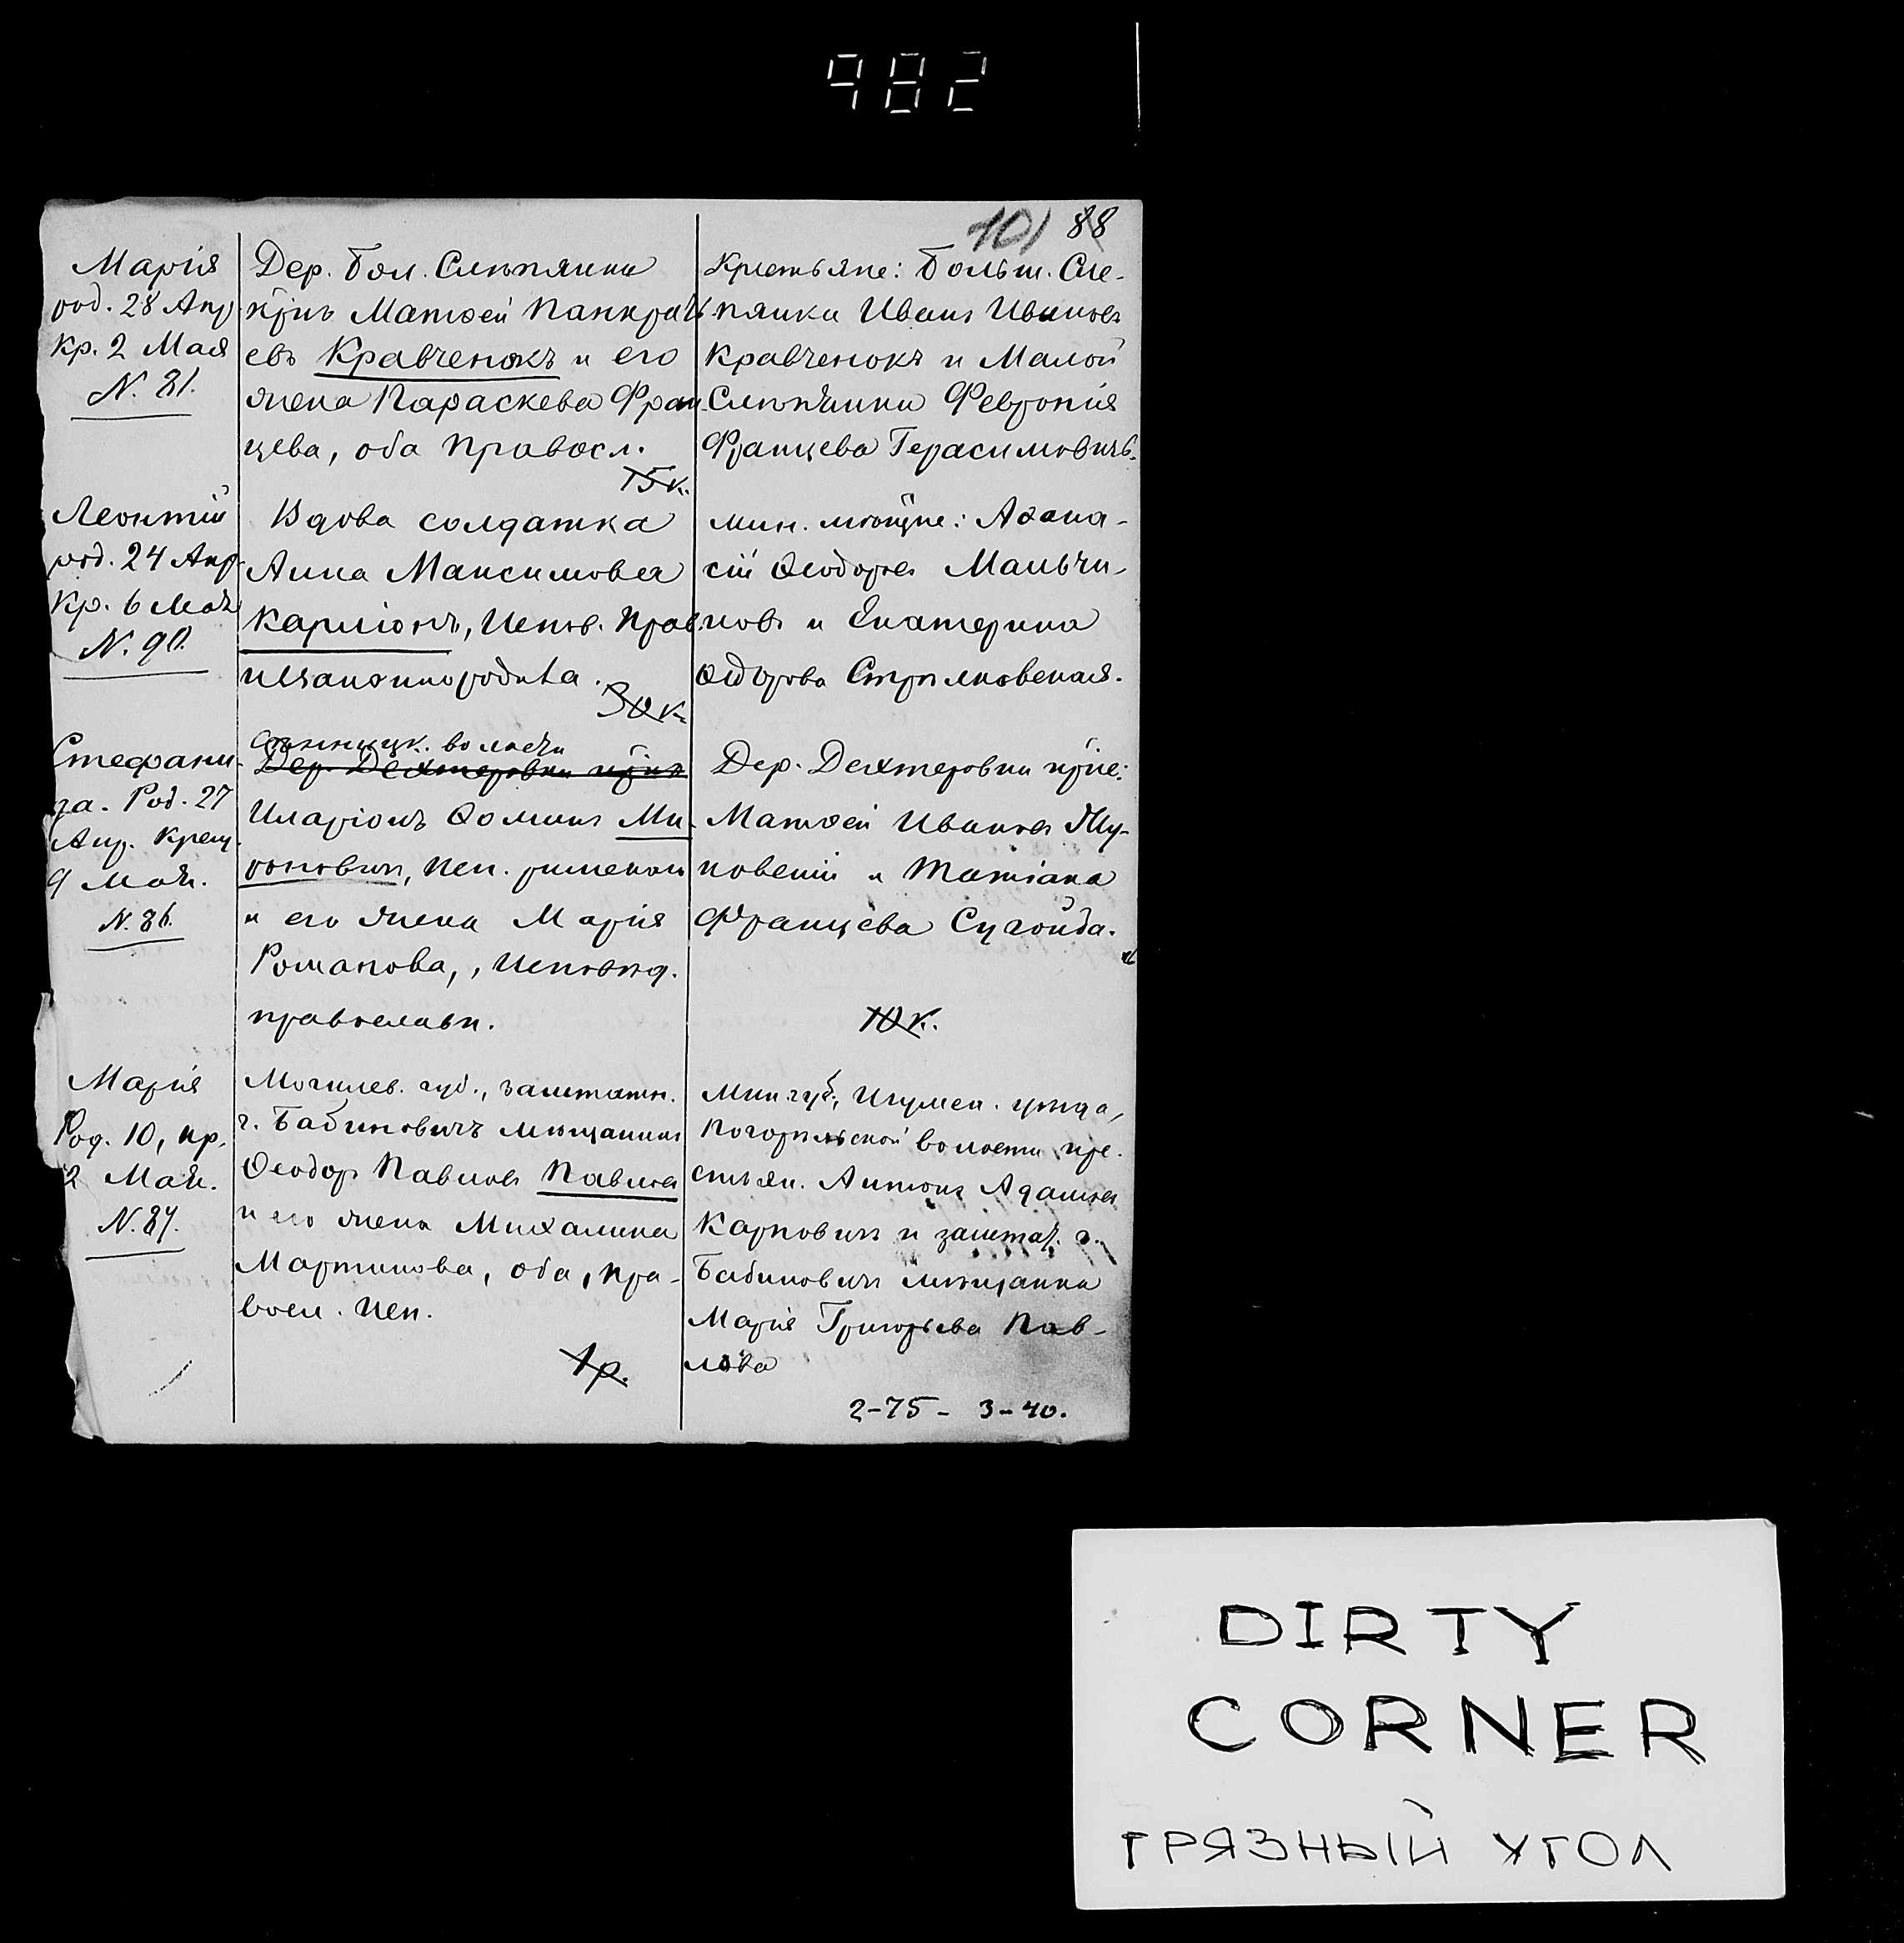 982
101 88
Марія
род. 28 Апр.
Кр. 2 Мая
N. 81.
Дер. Бол. Слѣпянки
кр̃нъ Матѳей Панкрать-
евъ Кравченокъ и его
жена Параскева Фран-
цева, оба правосл.
75 к.
Крестьяне: Больш. Сле-
пянки Иванъ Ивановъ
Кравченокъ и Малой
Слѣпянки Февронія
Францева Герасимовичъ.
Леонтій
род. 24 Апр.
Кр. 6 Мая
N. 90.
Вдова солдатка
Анна Максимова
Испов. Прав.
30 к.
Мин. мѣщане: Аѳана-
сій Ѳеодоровъ Мальчи-
новъ и Екатерина
Стрѣлковская.
Стефани-
да. Род. 27
Апр. Крещ.
9 Мая.
N. 86.
волости
Дер. Дехтеровки кр̃нъ
Иларіонъ Ѳоминъ Ми-
роновичъ, исп. римскаго
и его жена Марія
Романова, , Исповѣд.
православн.
Дер. Дехтеровки кр̃не:
Матѳей Ивановъ Жу-
ковскій и Татіана
Францева Сугойда.
10 к.
Марія
Род. 10, кр.
2 Мая.
N. 87.
Могилев. губ., заштатн.
г. Бабиновичъ мѣщанинъ
Ѳеодоръ Павловъ Павловъ
и его жена Михалина
Мартинова, оба, пра-
восл. исп.
1 р.
Мин. губ., Игумен. уѣзда,
Погорѣльской волости кре-
стьян. Антонъ Адамовъ
Карповичъ и заштат. г.
Бабиновичъ мѣщанка
Марія Григорьева Пав-
лова
2-75- 3-40.
DIRTY
CORNER
ГРЯЗНЫЙ УГОЛ